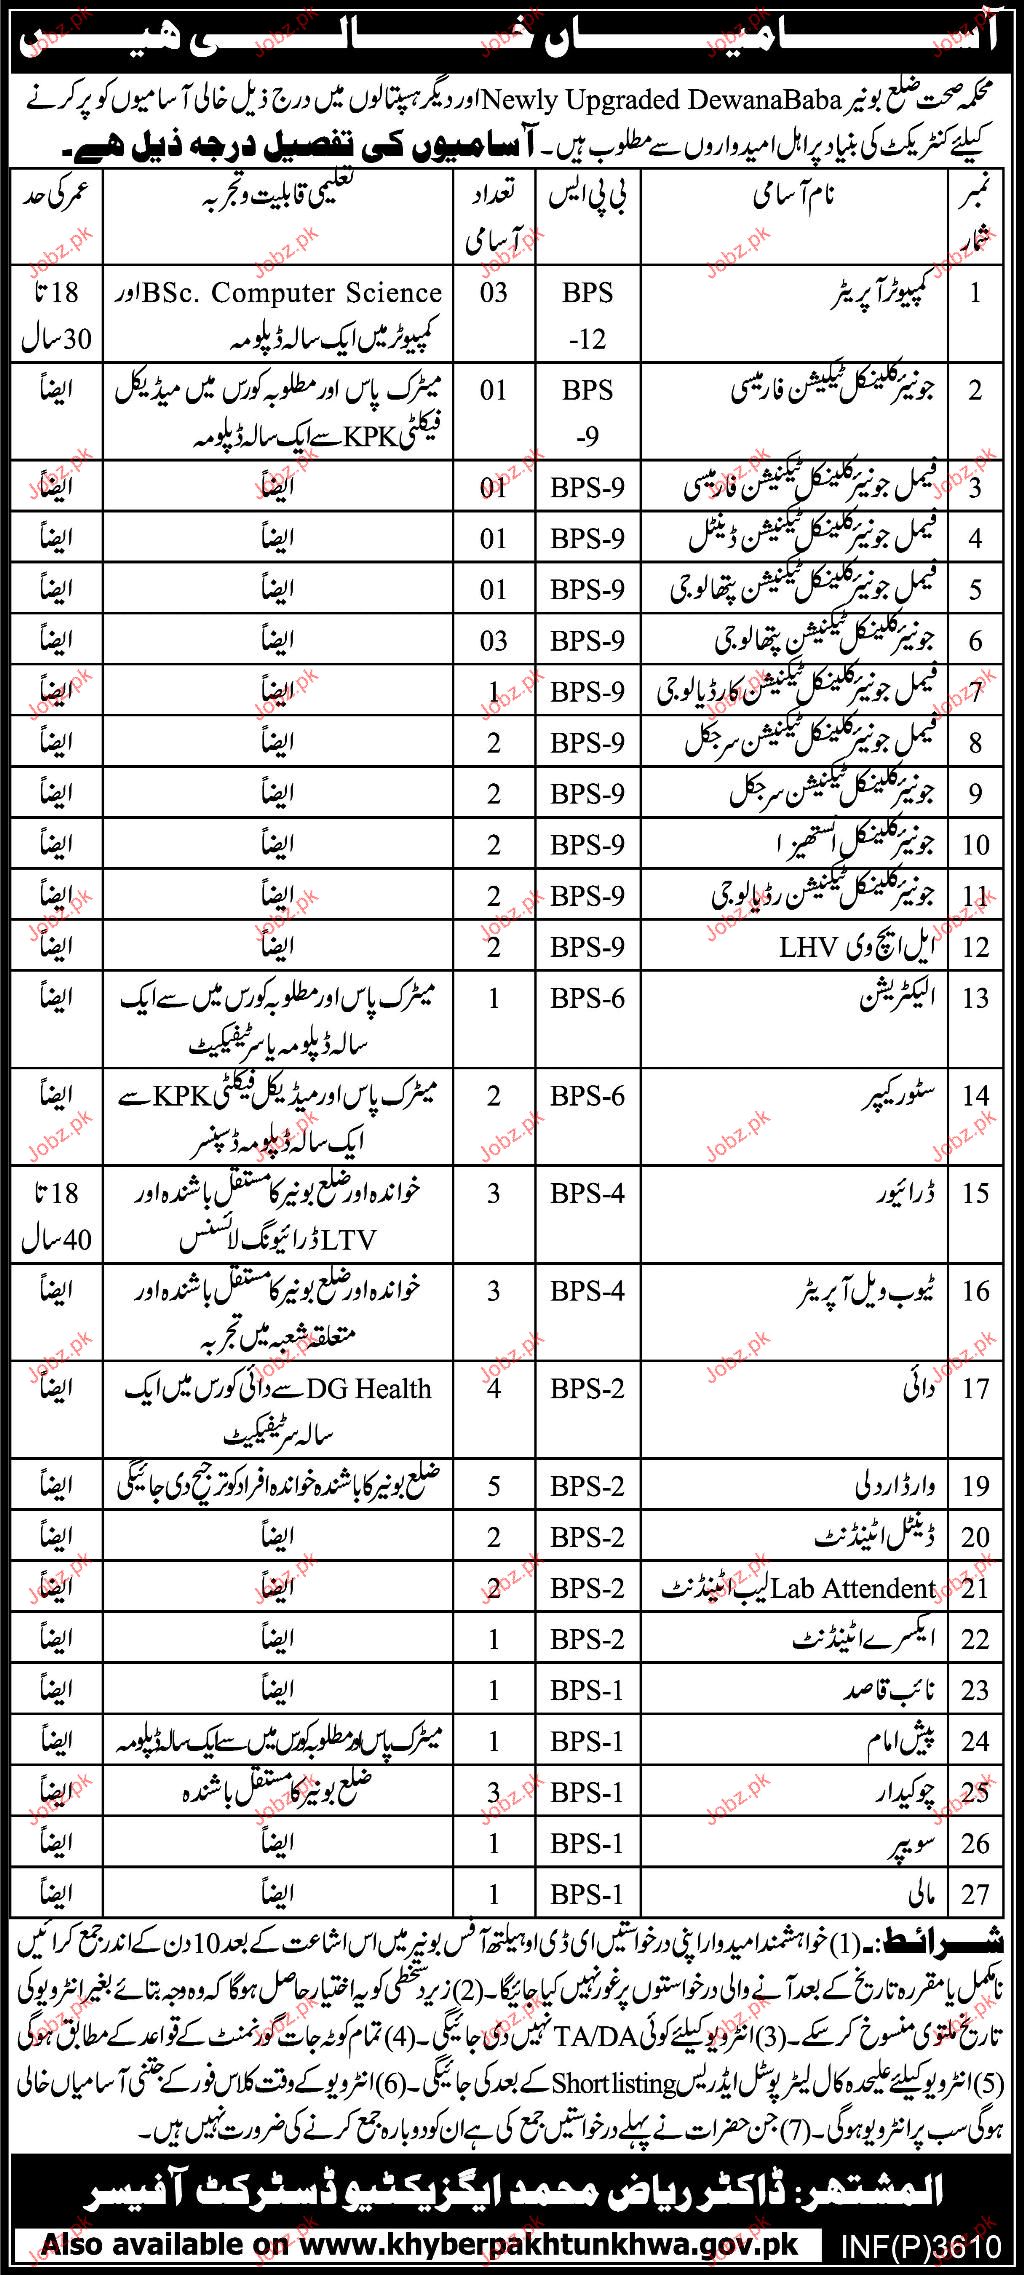 آسامیاں خالی ھیں
محکمہ صحت ضلع بونیر Newly Upgraded DewanaBaba اور دیگر ہسپتالوں میں درج ذیل خالی آسامیوں کو پر کرنے
کیلئے کنٹریکٹ کی بنیاد پر اہل امیدواروں سے مطلوب ہیں۔ آسامیوں کی تفصیل درجہ ذیل ھے۔
نمبر شمار | نام آسامی | بی پی ایس | تعداد آسامی | تعلیمی قابلیت و تجربہ | عمر کی حد
1 | کمپیوٹر آپریٹر | BPS -12 | 03 | BSc. Computer Science اور کمپیوٹر میں ایک سالہ ڈپلومہ | 18 تا 30 سال
2 | جونیئر کلینکل ٹیکنیشن فارمیسی | BPS -9 | 01 | میٹرک پاس اور مطلوبہ کورس میں میڈیکل فیکلٹی KPK سے ایک سالہ ڈپلومہ | ایضاً
3 | فیمل جونیئر کلینکل ٹیکنیشن فارمیسی | BPS-9 | 01 | ایضاً | ایضاً
4 | فیمل جونیئر کلینکل ٹیکنیشن ڈینٹل | BPS-9 | 01 | ایضاً | ایضاً
5 | فیمل جونیئر کلینکل ٹیکنیشن پتھالوجی | BPS-9 | 01 | ایضاً | ایضاً
6 | جونیئر کلینکل ٹیکنیشن پتھالوجی | BPS-9 | 03 | ایضاً | ایضاً
7 | فیمل جونیئر کلینکل ٹیکنیشن کارڈیالوجی | BPS-9 | 1 | ایضاً | ایضاً
8 | فیمل جونیئر کلینکل ٹیکنیشن سرجکل | BPS-9 | 2 | ایضاً | ایضاً
9 | جونیئر کلینکل ٹیکنیشن سرجکل | BPS-9 | 2 | ایضاً | ایضاً
10 | جونیئر کلینکل انستھیزا | BPS-9 | 2 | ایضاً | ایضاً
11 | جونیئر کلینکل ٹیکنیشن رڈیالوجی | BPS-9 | 2 | ایضاً | ایضاً
12 | ایل ایچ وی LHV | BPS-9 | 2 | ایضاً | ایضاً
13 | الیکٹریشن | BPS-6 | 1 | میٹرک پاس اور مطلوبہ کورس میں سے ایک سالہ ڈپلومہ یا سرٹیفیکیٹ | ایضاً
14 | سٹور کیپر | BPS-6 | 2 | میٹرک پاس اور میڈیکل فیکلٹی KPK سے ایک سالہ ڈپلومہ ڈسپنسر | ایضاً
15 | ڈرائیور | BPS-4 | 3 | خواندہ اور ضلع بونیر کا مستقل باشندہ اور LTV ڈرائیونگ لائسنس | 18 تا 40 سال
16 | ٹیوب ویل آپریٹر | BPS-4 | 3 | خواندہ اور ضلع بونیر کا مستقل باشندہ اور متعلقہ شعبہ میں تجربہ | ایضاً
17 | دائی | BPS-2 | 4 | DG Health سے دائی کورس میں ایک سالہ سرٹیفکیٹ | ایضاً
19 | وارڈ اردلی | BPS-2 | 5 | ضلع بونیر کا باشندہ خواندہ افراد کو ترجیح دی جائیگی | ایضاً
20 | ڈینٹل اٹینڈنٹ | BPS-2 | 2 | ایضاً | ایضاً
21 | Lab Attendent لیب اٹینڈنٹ | BPS-2 | 2 | ایضاً | ایضاً
22 | ایکسرے اٹینڈنٹ | BPS-2 | 1 | ایضاً | ایضاً
23 | نائب قاصد | BPS-1 | 1 | ایضاً | ایضاً
24 | پیش امام | BPS-1 | 1 | میٹرک پاس اور مطلوبہ کورس میں سے ایک سالہ ڈپلومہ | ایضاً
25 | چوکیدار | BPS-1 | 3 | ضلع بونیر کا مستقل باشندہ | ایضاً
26 | سویپر | BPS-1 | 1 | ایضاً | ایضاً
27 | مالی | BPS-1 | 1 | ایضاً | ایضاً
شرائط:۔ (1) خواہشمند امیدوار اپنی درخواستیں ای ڈی او ہیلتھ آفس بونیر میں اس اشاعت کے بعد 10 دن کے اندر جمع کرائیں
نامکمل یا مقررہ تاریخ کے بعد آنے والی درخواستوں پر غور نہیں کیا جائیگا۔ (2) زیر دستخطی کو یہ اختیار حاصل ہوگا کہ وہ وجہ بتائے بغیر انٹرویو کی
تاریخ ملتوی منسوخ کر سکے۔ (3) انٹرویو کیلئے کوئی TA/DA نہیں دی جائیگی۔ (4) تمام کوٹہ جات گورنمنٹ کے قواعد کے مطابق ہوگی
(5) انٹرویو کیلئے علیحدہ کال لیٹر پوسٹل ایڈریس Shortlisting کے بعد کی جائیگی۔ (6) انٹرویو کے وقت کلاس فور کے جتنی آسامیاں خالی
ہوگی سب پر انٹرویو ہوگی۔ (7) جن حضرات نے پہلے درخواستیں جمع کی ہے ان کو دوبارہ جمع کرنے کی ضرورت نہیں ہیں۔
المشتھر: ڈاکٹر ریاض محمد ایگزیکٹیو ڈسٹرکٹ آفیسر
Also available on www.khyberpakhtunkhwa.gov.pk
INF(P)3610
Jobz.pk